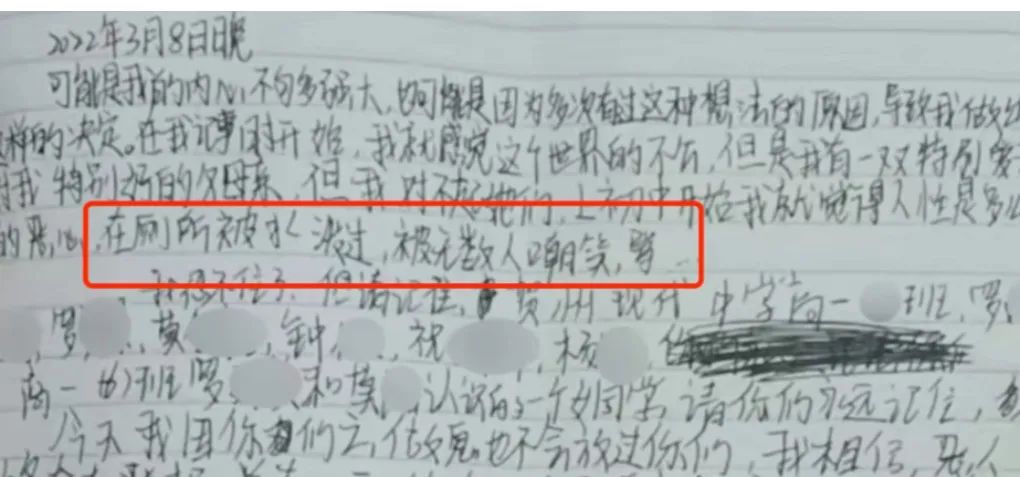 2022年3月8日晚
可能是我的内心不够多强大,也可能是因为多次有过这种想法的原因,导致我做出
这样的决定。在我记事开始,我就感觉这个世界的不公,但是我有一双特别爱
对我特别好的父母亲,但我对不起她们,上初中开始我就觉得人性是多么
的恶心,在厕所被水泼过,被无数人嘲笑,等…
我忍不住了,但请记住,贺州现代中学高一 班,罗
,罗 ,莫 ,钟 ,祝 ,杨
高一 班罗 和莫 认识的一个女同学,请你们永远记住,
今天我因你们亡,做鬼也不会放过你们,我相信,恶人